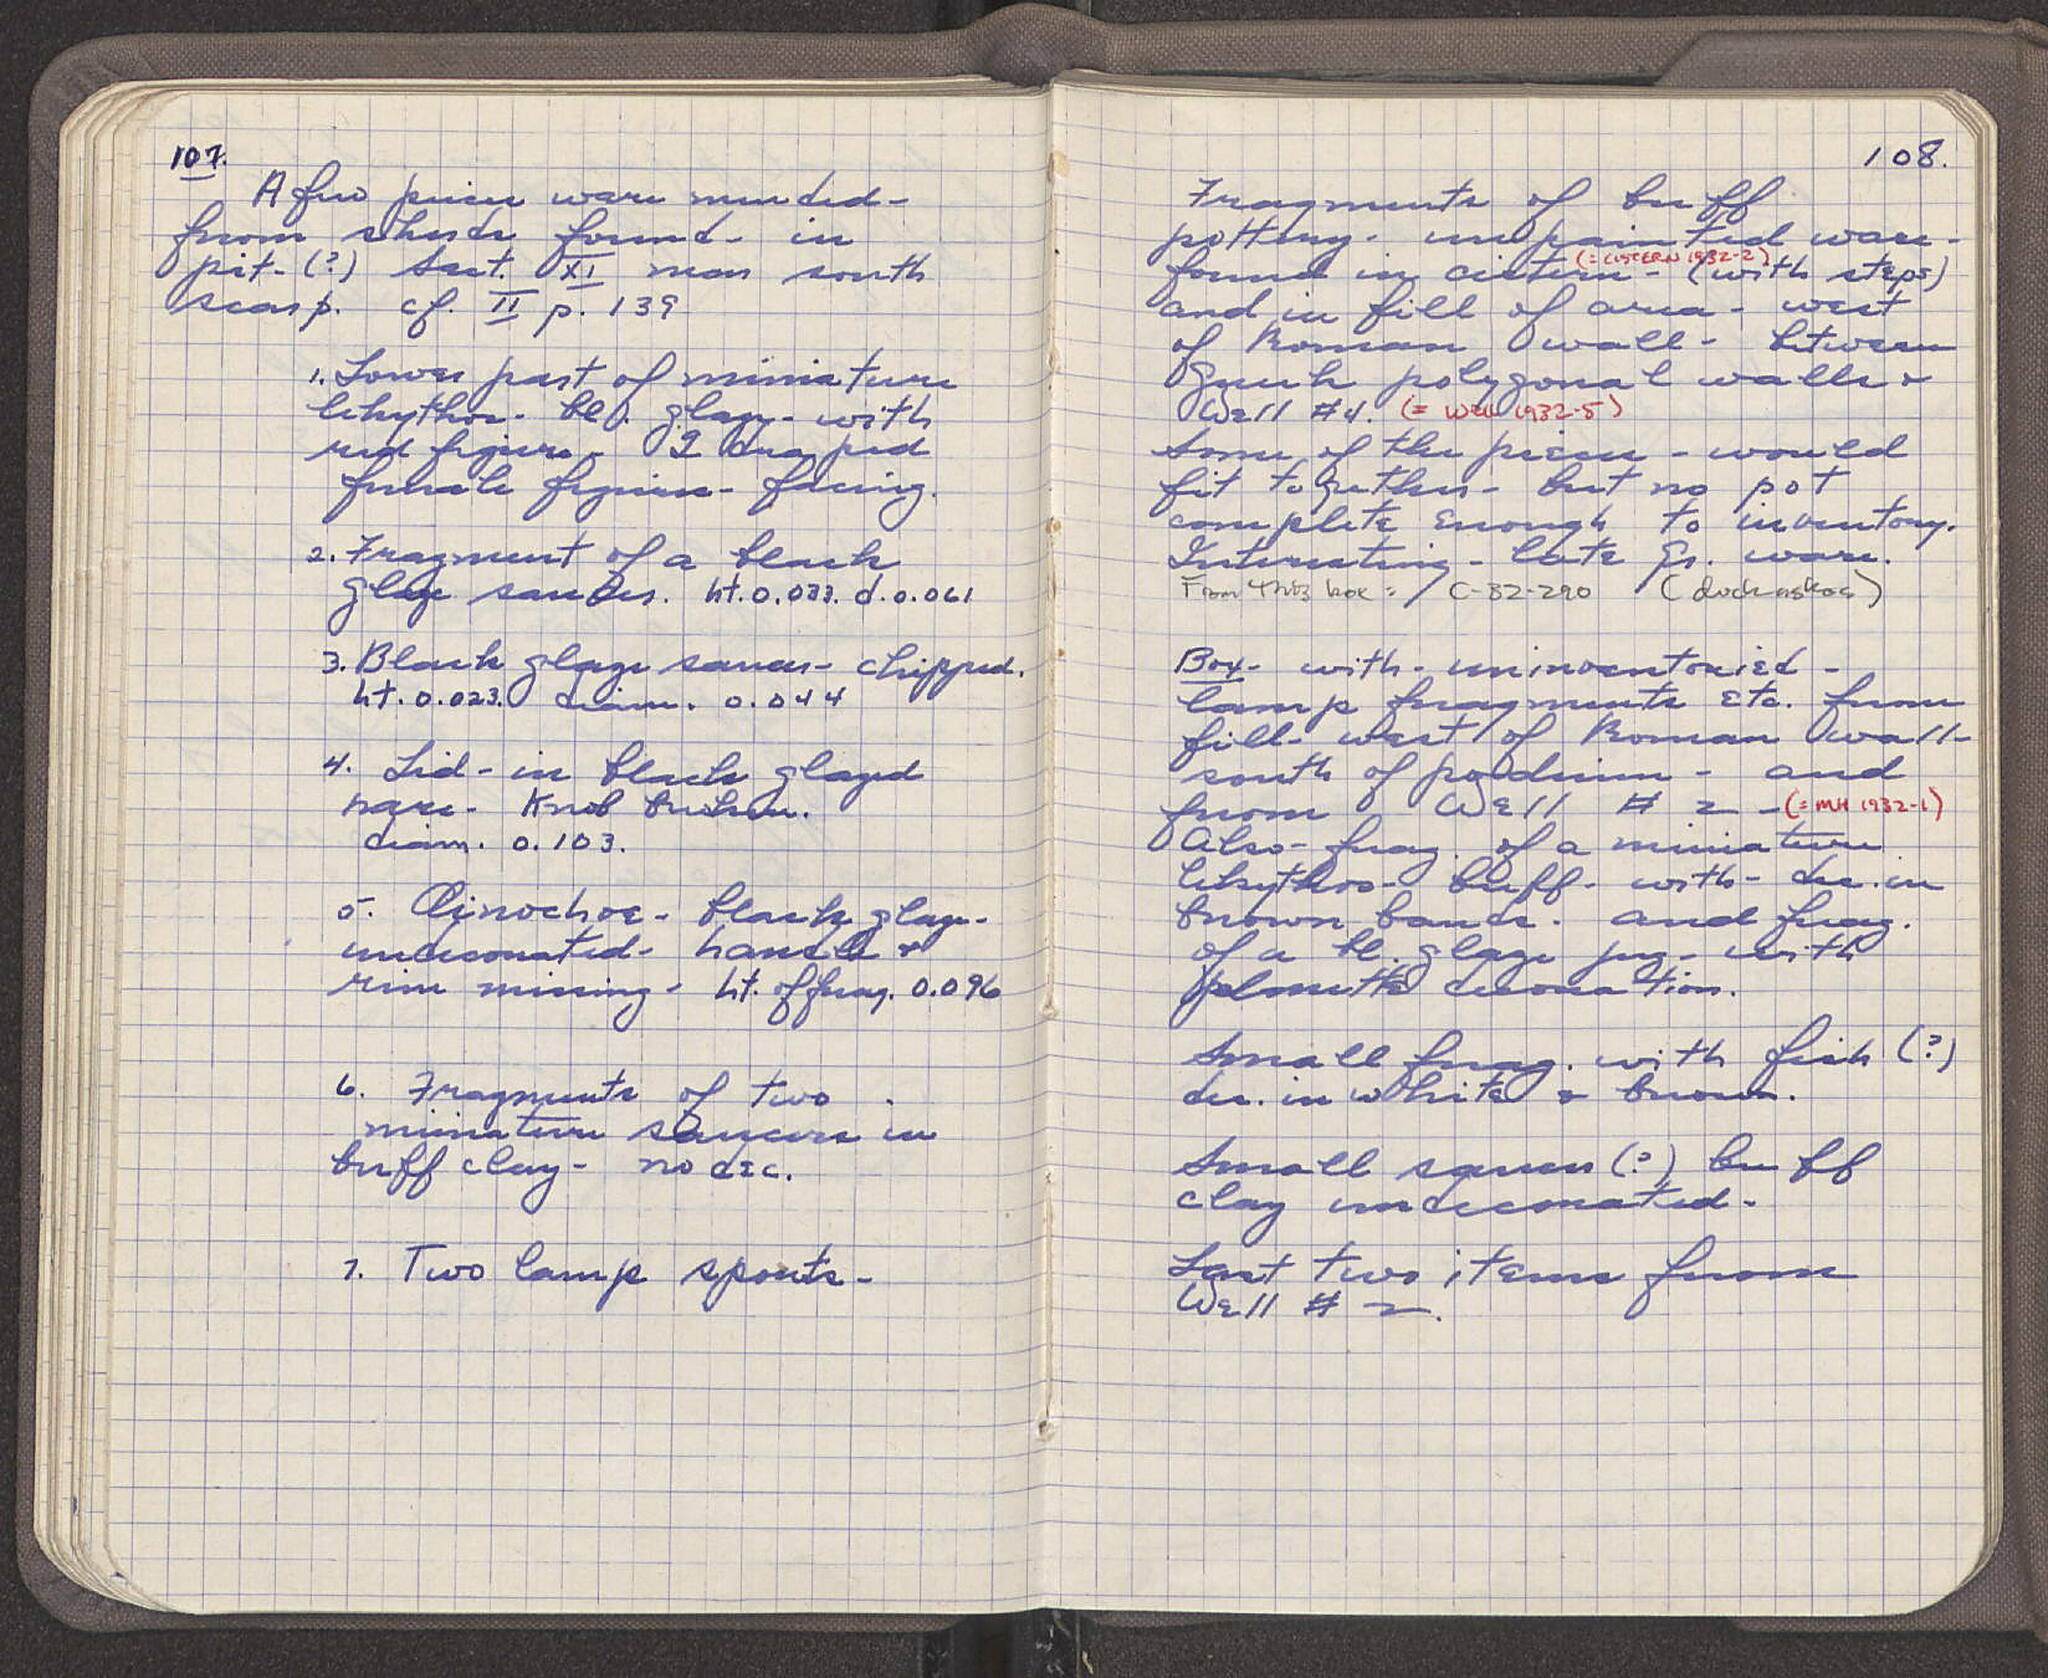 107.
A few pieces were mended-
from sherds found- in
pit- (?) Sect. XI near south
scarp. cf. II p. 139
1. Lower part of miniature
lekythos- bl. glaze- with
red figure- 2 draped
female figures- facing.
2. Fragment of a black
glaze saucer. ht. 0.033. d. 0.061
3. Black glaze saucer- chipped.
ht. 0.023. diam. 0.044
4. Lid- in black glazed
ware- Knob broken.
diam. 0.103.
5. Oinochoe- black glaze-
undecorated- handle &
rim missing- ht. of frag. 0.096
6. Fragments of two
miniature saucers in
buff clay- no dec.
7. Two lamp spouts-
108.
Fragments of buff
pottery- unpainted ware-
(= CISTERN 1932-2)
found in cistern- (with steps)
and in fill of area- west
of Roman wall- between
Greek polygonal walls &
Well #4. (= Well 1932-5)
Some of the pieces- would
fit together- but no pot
complete enough to inventory.
Interesting- late Gr. ware.
From this box = C-32-290
Box- with- uninventoried-
lamp fragments etc. from
fill- west of Roman wall-
south of podium- and
from Well # 2 - (= MH 1932-1)
Also- frag. of a miniature
lekythos- buff- with- dec. in
brown bands. and frag.
of a bl. glaze jug- with
palmette decoration.
Small frag. with fish (?)
dec. in white & brown.
Small saucer (?) buff
clay undecorated-
Last two items from
Well # 2.